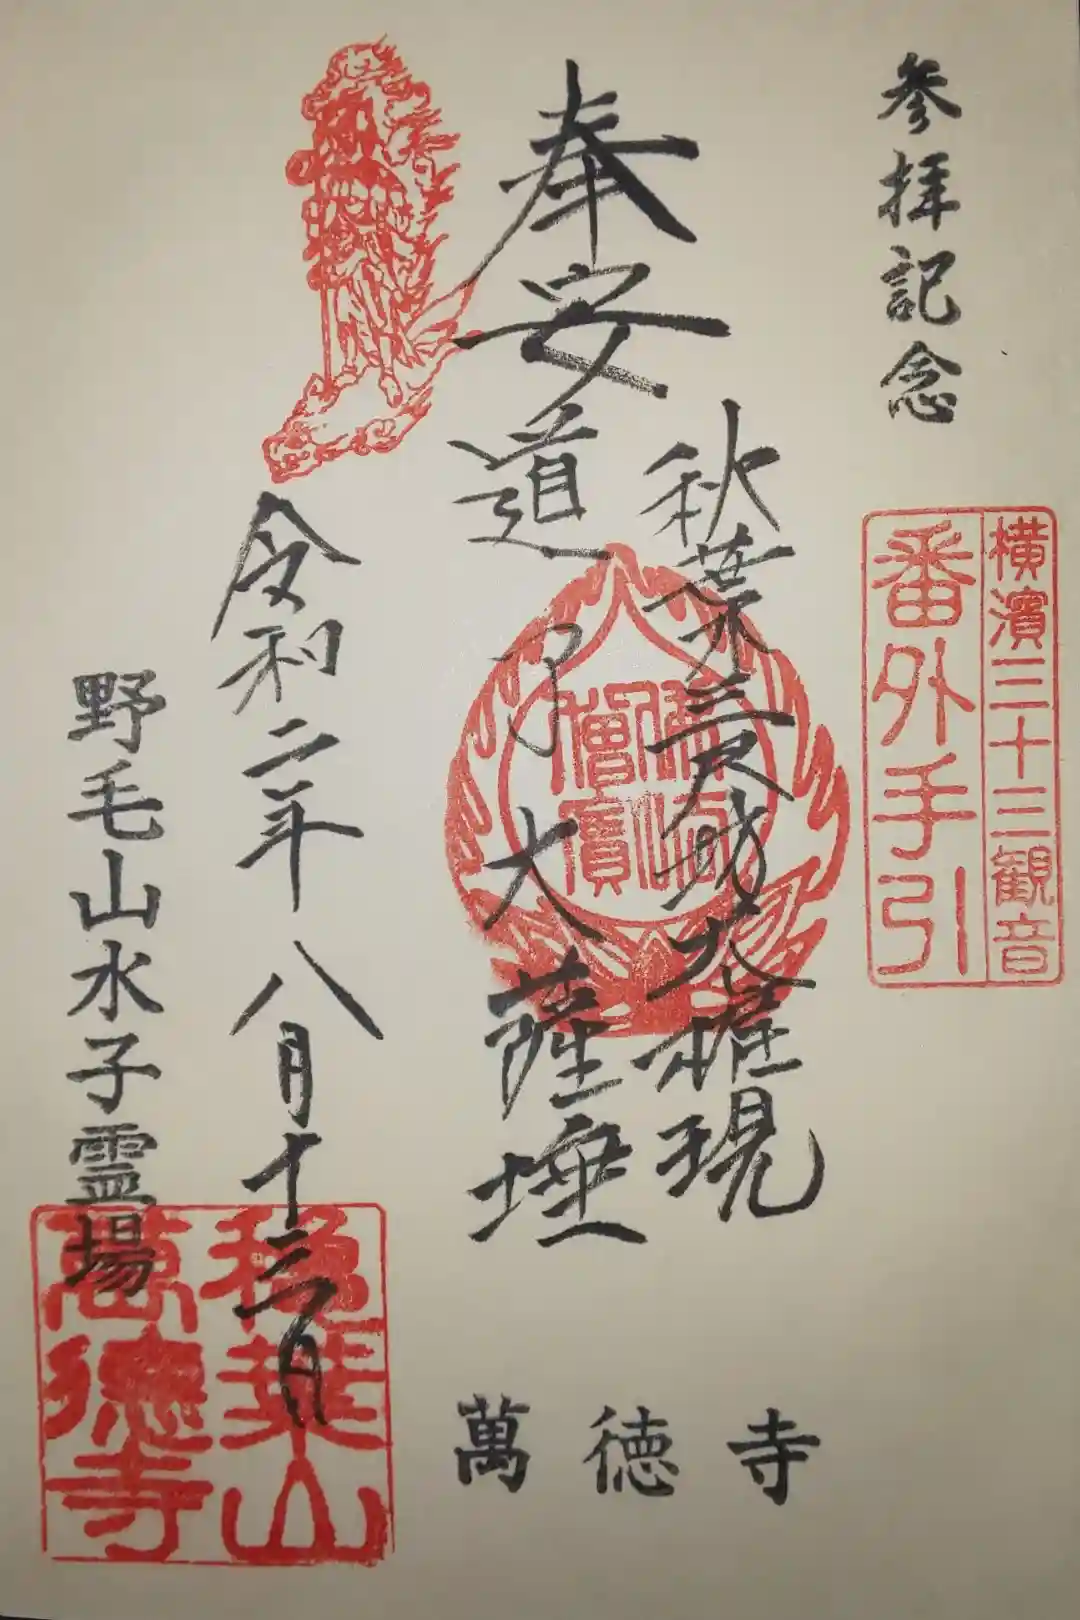 参拝記念
横濱三十三観音
番外手引
奉安
秋葉三尺坊大権現
道了大薩埵
佛法
僧寳
令和二年八月十三日
野毛山水子霊場
萬徳寺
秋葉山
萬徳寺